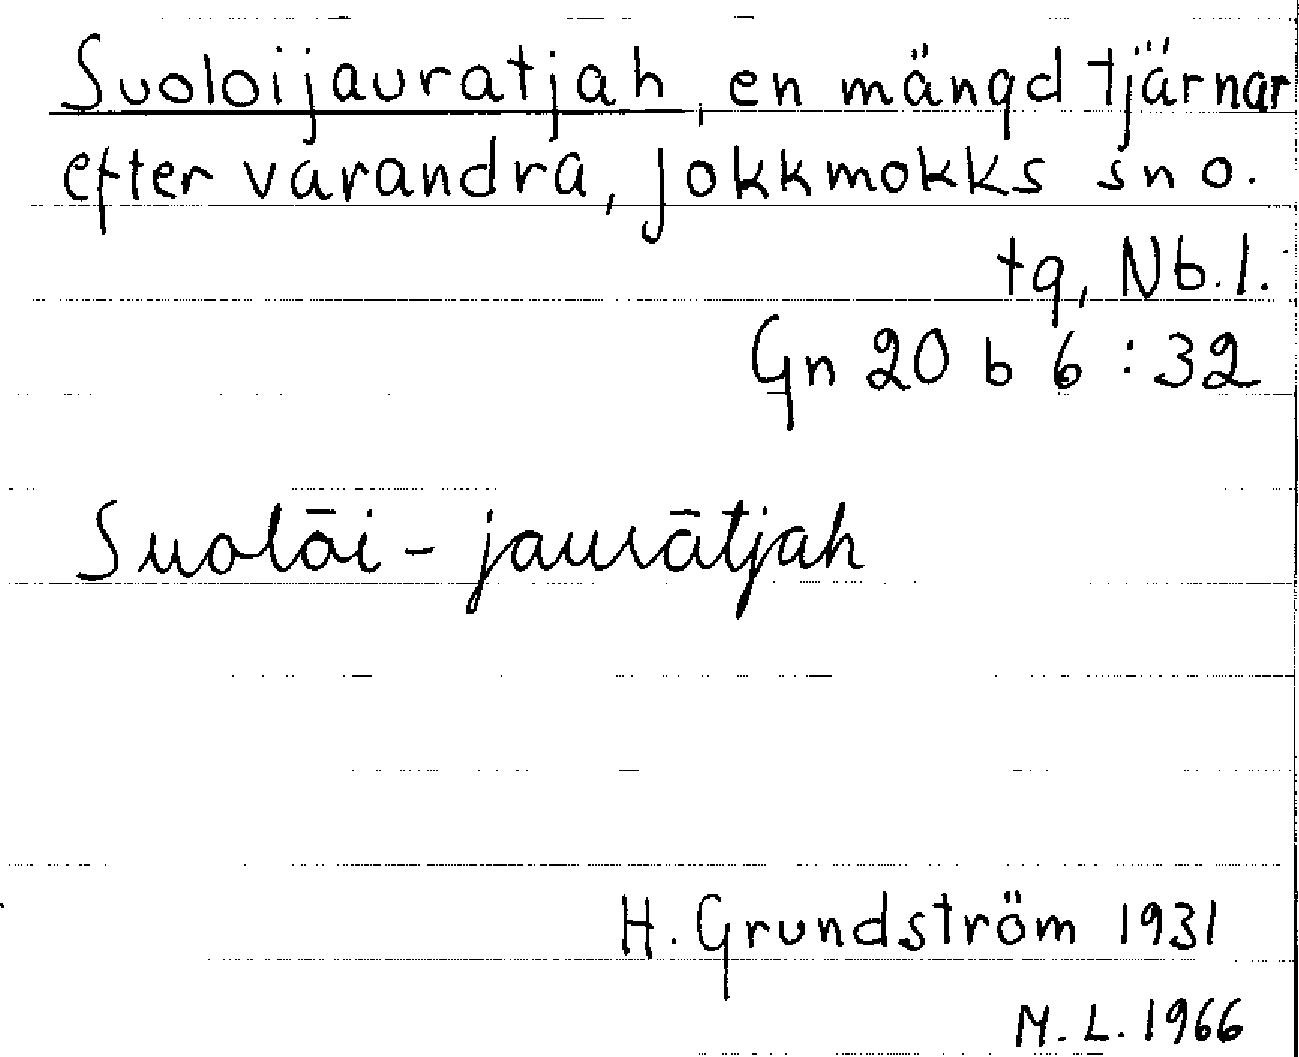 Suoloijauratjah, en mängd tjärnar
efter varandra, Jokkmokks sn o.
tg, Nb. l.
Gn 20 b 6 : 32
Suolāi - jaurātjah
H. Grundström 1931
M. L. 1966